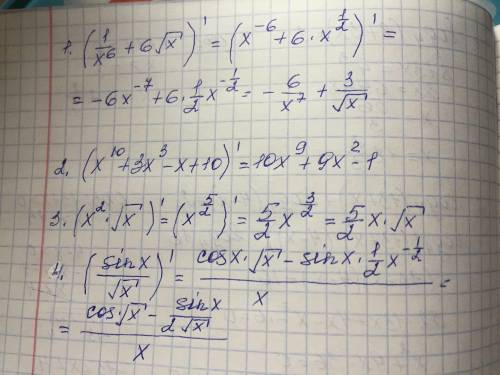 1. (1/x⁶ + 6√x)' = (x⁻⁶ + 6 · x^(1/2))' =
= -6x⁻⁷ + 6 · 1/2 x^(-1/2) = - 6/x⁷ + 3/√x
2. (x¹⁰ + 3x³ - x + 10)' = 10x⁹ + 9x² - 1
3. (x² · √x)' = (x^(5/2))' = 5/2 x^(3/2) = 5/2 x · √x
4. (sinx/√x)' = (cosx · √x - sinx · 1/2 x^(-1/2))/x =
= (cos√x - sinx/(2√x))/x